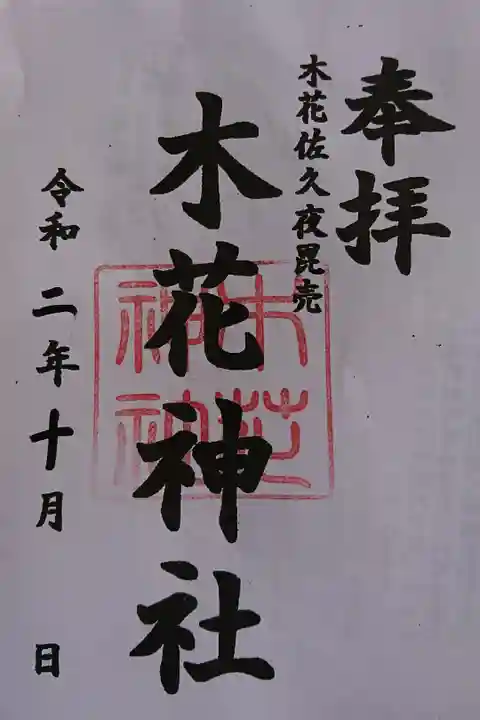 奉拝
木花佐久夜毘売
木花神社
令和二年十月 日